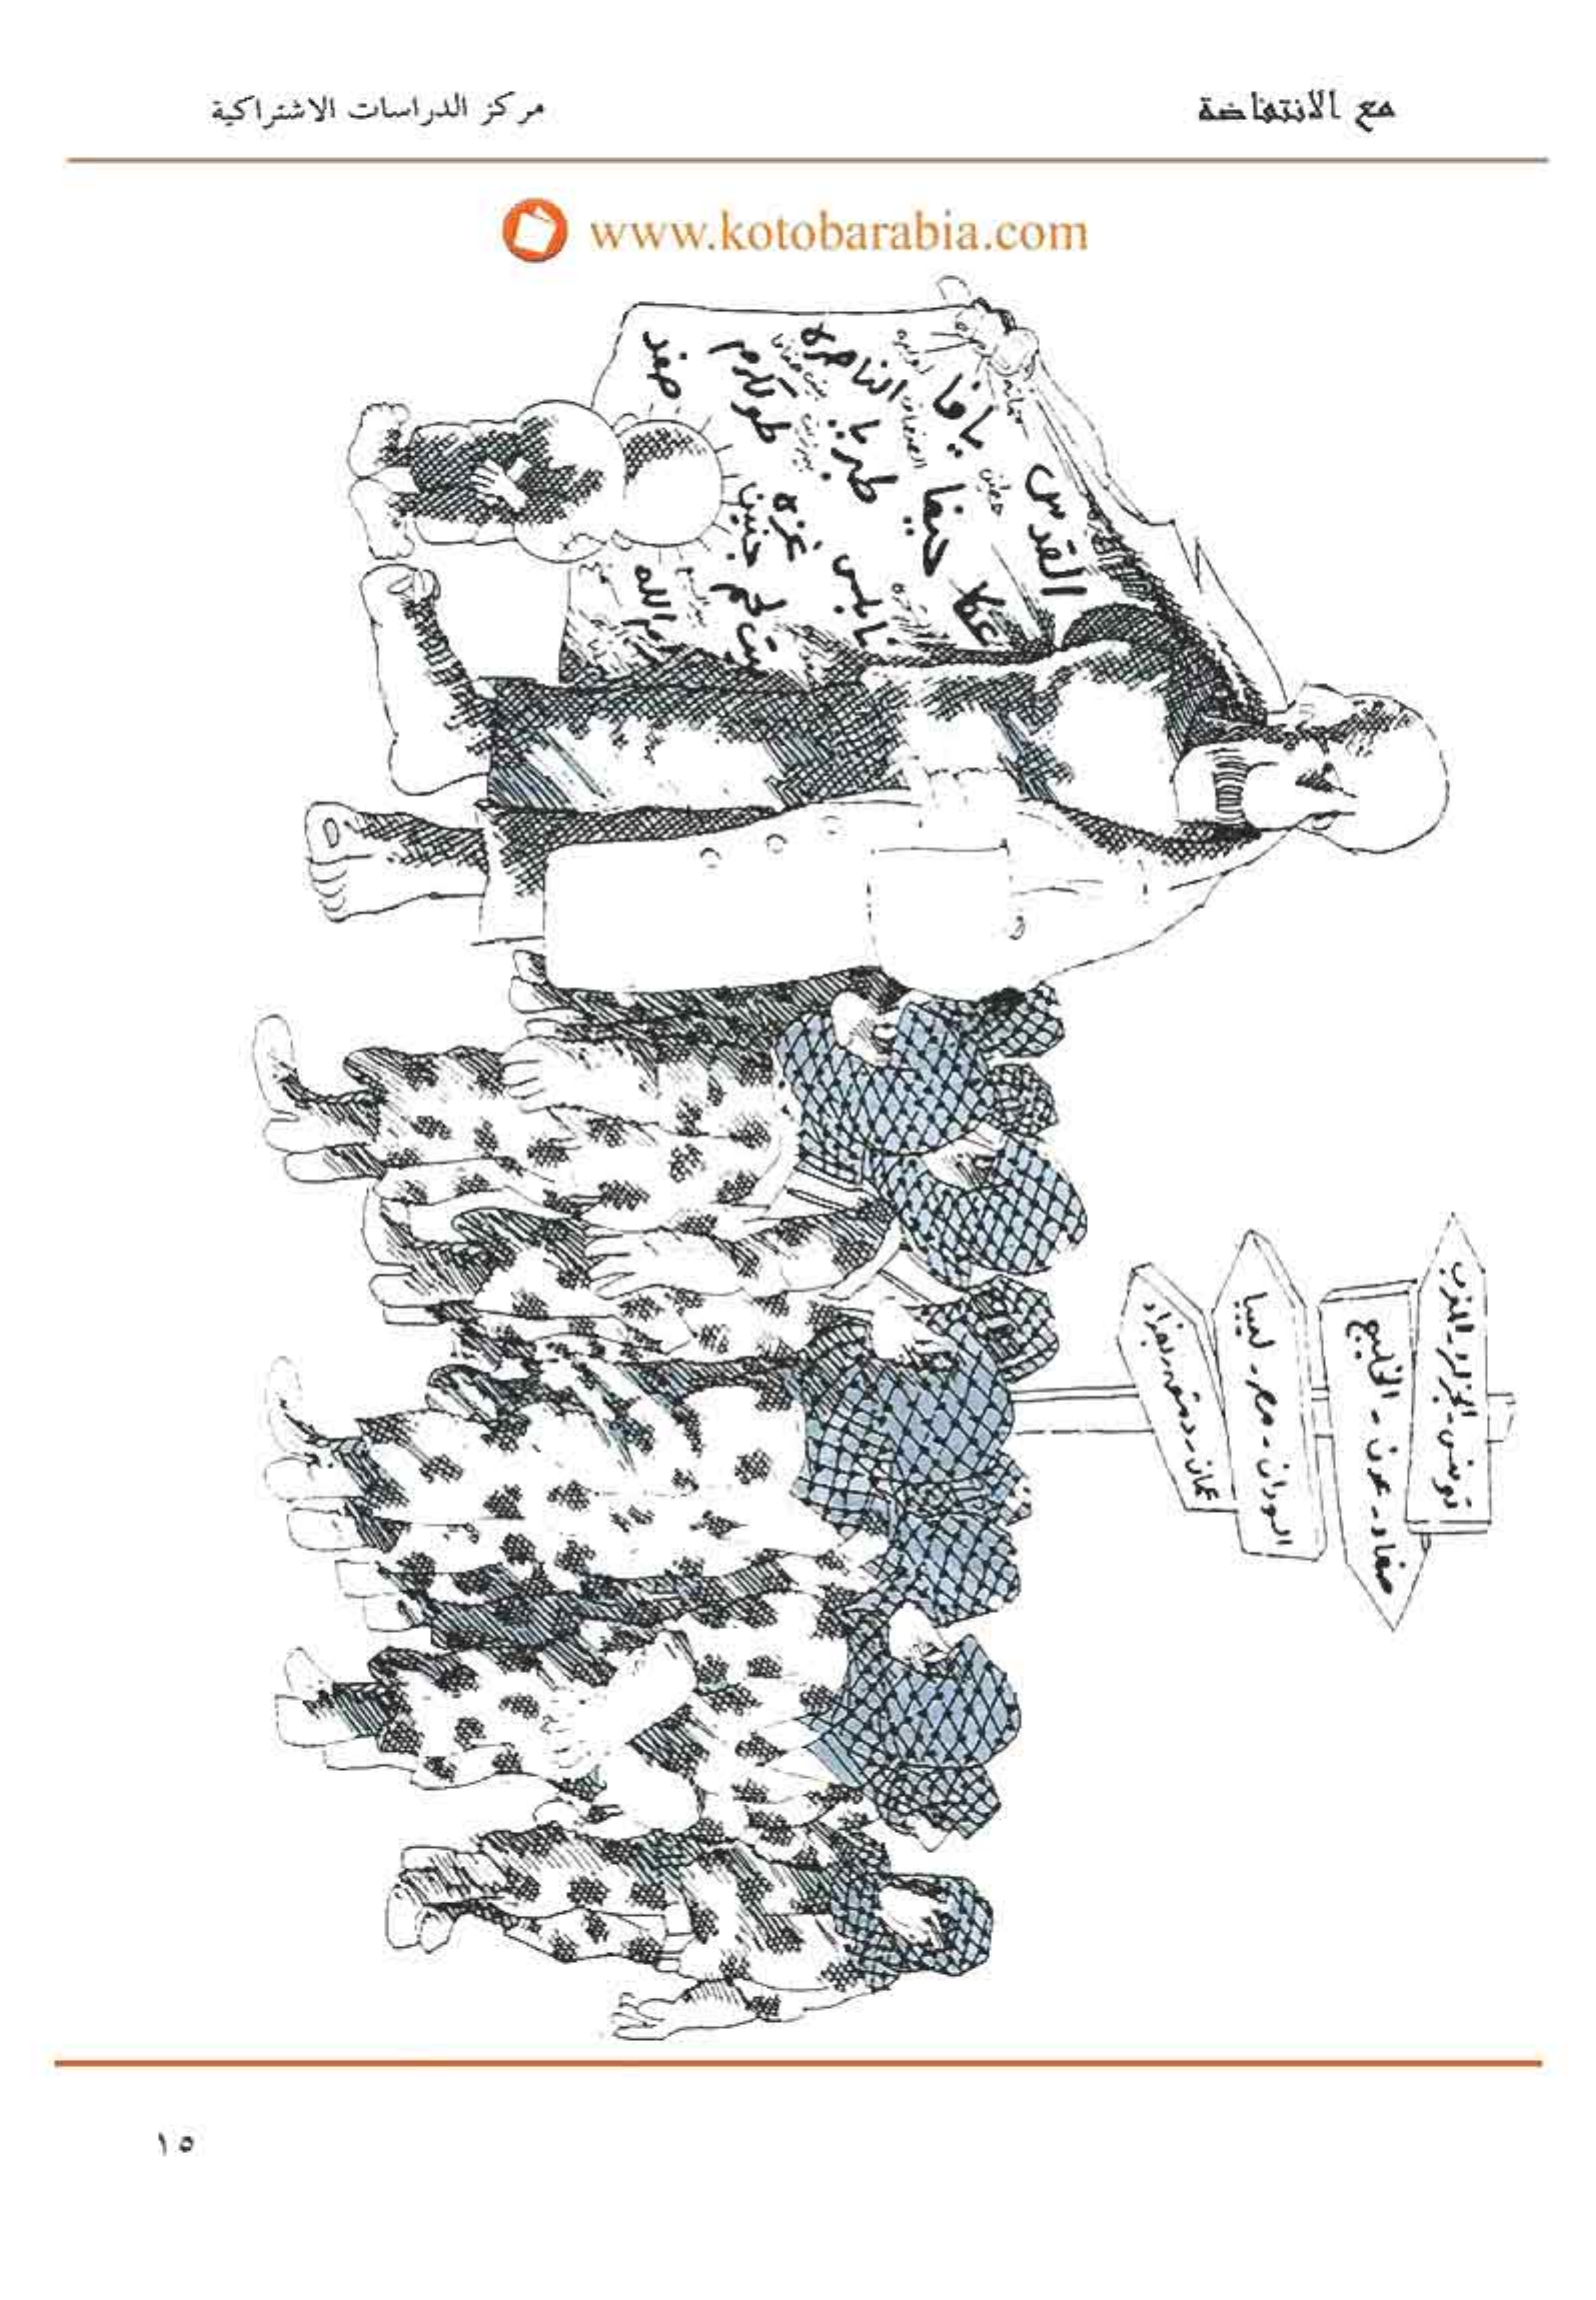 مع الانتفاضة
مركز الدراسات الاشتراكية
www.kotobarabia.com
القدس
يافا
حطين
عكا
حيفا
الناصره
طبريا
نابلس
غزه
طولكرم
جنين
بيت لحم
صفد
رام الله
تونس - الجزائر - المغرب
صنعاء - عدن - الخليج
السودان - مصر - ليبيا
عمان - دمشق - بغداد
١٥